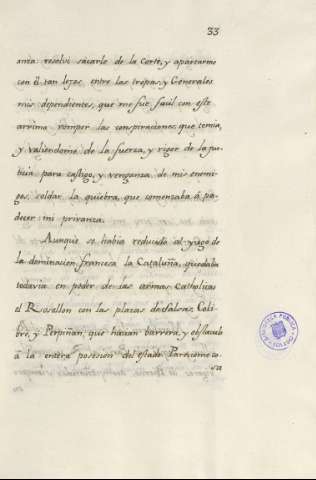 33
ania: resolvi sacarle de la Corte, y apartarme
con él tan lejos entre las tropas, y Generales
mis dependientes, que me fué facil con este
arrimo romper las conspiraciones, que temia,
y valiendome de la fuerza, y rigor de la jus-
ticia para castigo, y venganza de mis enemi-
gos, soldar la quiebra, que comenzaba á pa-
decer mi privanza.
Aunque se habia reducido al yugo de
la dominacion francesa la Cataluña, quedaba
todavia en poder de las armas Catholicas
el Rosellon con las plazas de Salvas, Coli-
bre, y Perpiñan, que hacian barrera, y obstaculo
á la entera posesion del estado. Pareciome co-
sa
BIBLIOTECA PUBLICA
TOLEDO